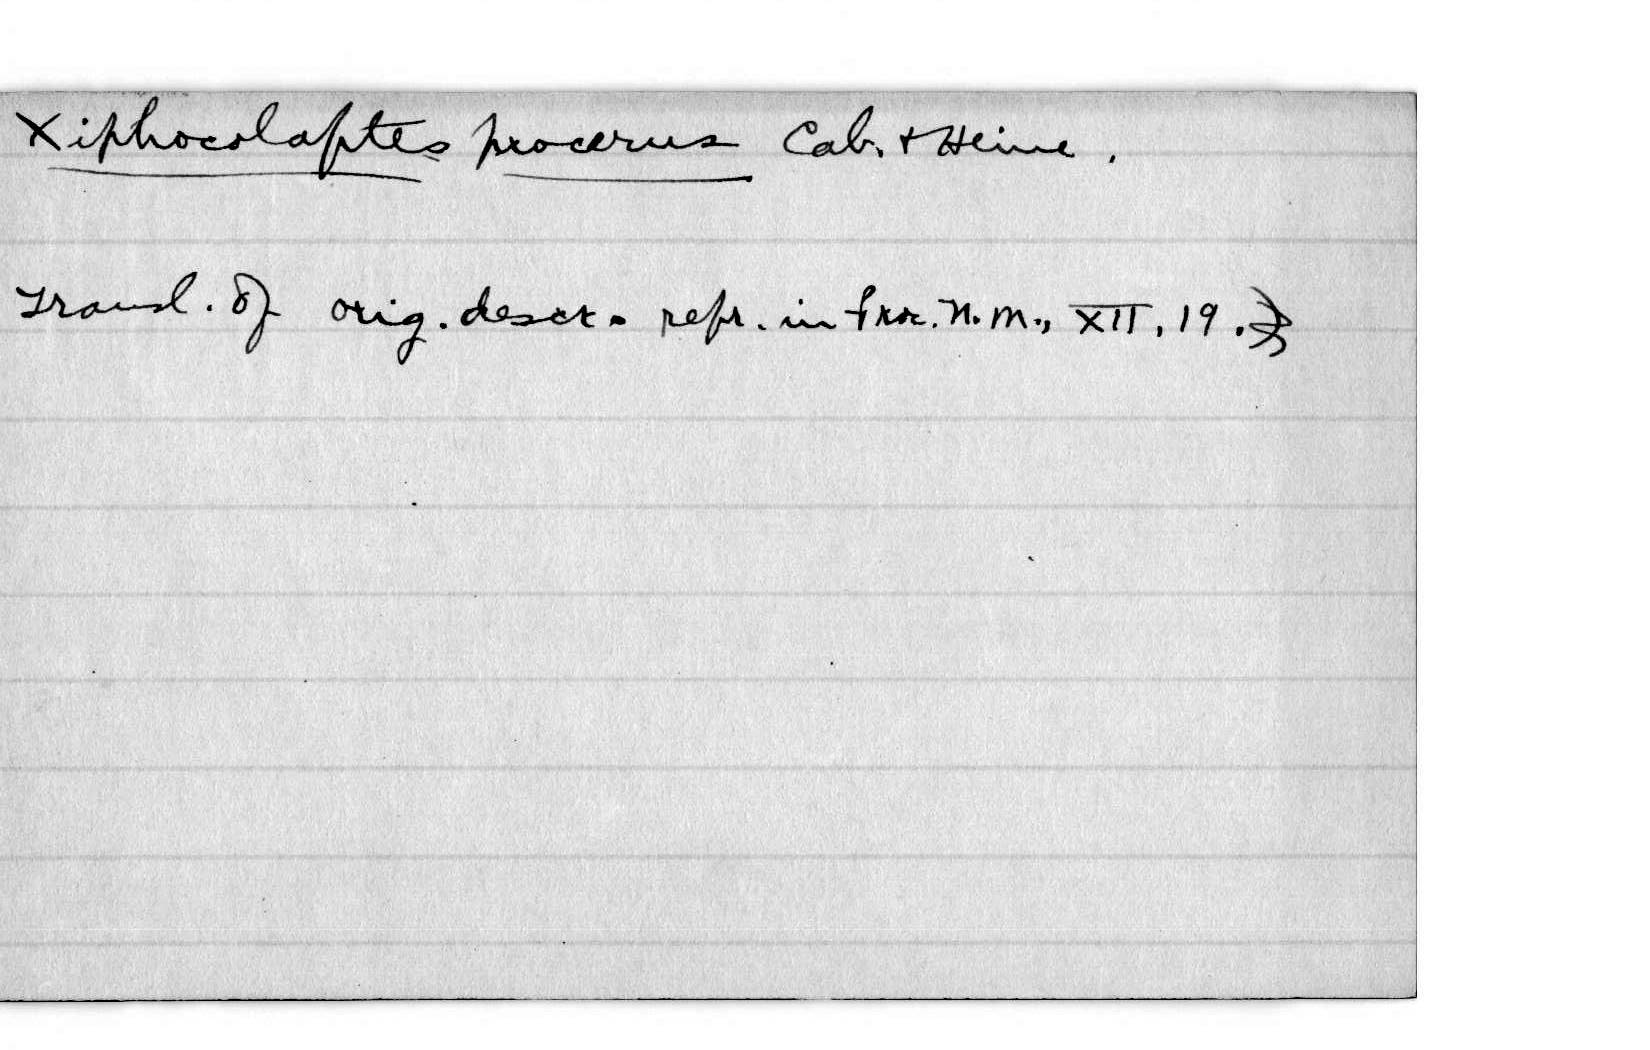 Xiphocolaptes procerus Cab. + Heine.
Transl. of orig. descr. repr. in Proc. N. M., XII, 19.